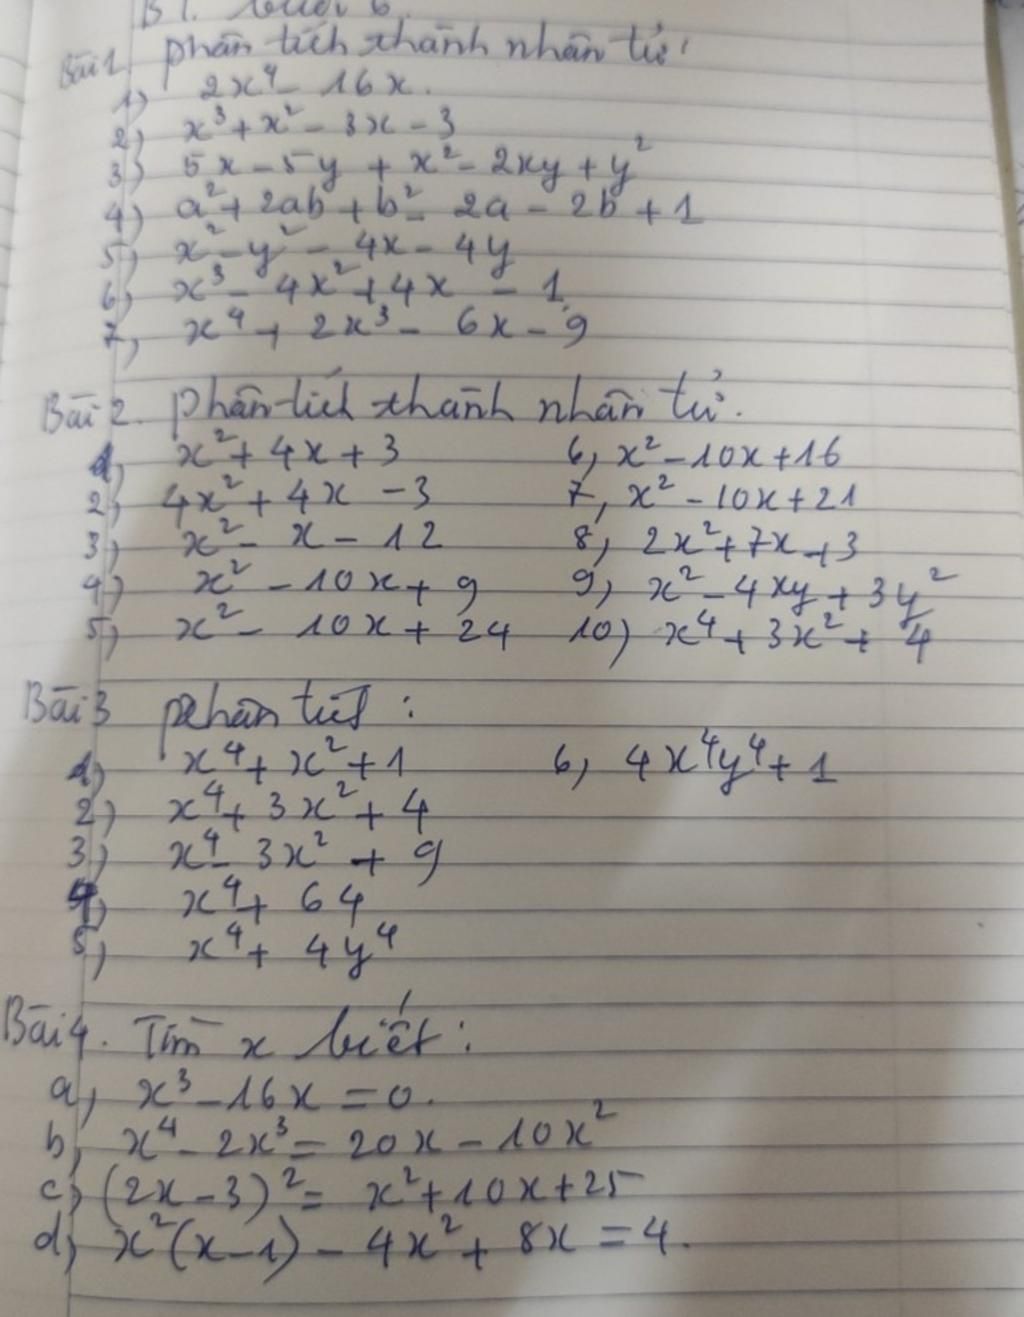 Bài 1 phân tích thành nhân tử
1) 2x⁴ - 16x.
2) x³ + x² - 3x - 3
3) 5x - 5y + x² - 2xy + y²
4) a² + 2ab + b² - 2a - 2b + 1
5) x² - y² - 4x - 4y
6) x³ - 4x² + 4x - 1
7, x⁴ + 2x³ - 6x - 9
Bài 2. phân tích thành nhân tử.
1, x² + 4x + 3 6, x² - 10x + 16
2) 4x² + 4x - 3 7, x² - 10x + 21
3) x² - x - 12 8, 2x² + 7x + 3
4) x² - 10x + 9 9, x² - 4xy + 3y²
5) x² - 10x + 24 10) x⁴ + 3x² + 4
Bài 3 phân tích :
1) x⁴ + x² + 1 6, 4x⁴y⁴ + 1
2) x⁴ + 3x² + 4
3) x⁴ - 3x² + 9
4, x⁴ + 64
5, x⁴ + 4y⁴
Bài 4. Tìm x biết :
a, x³ - 16x = 0.
b, x⁴ - 2x³ = 20x - 10x²
c, (2x - 3)² = x² + 10x + 25
d, x²(x - 1) - 4x² + 8x = 4.